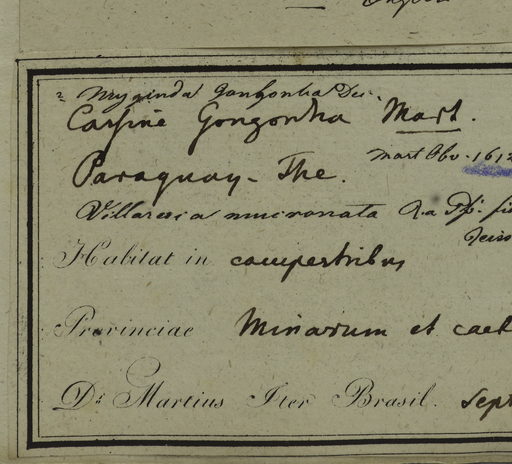 ? Myginda Gonhonha Dec.
Cassine Gongonha Mart.
Mart Obs. 1612
Paraguay - The.
Villaresia mucronata R. a P.
Habitat in campestribus
Provinciae Minarum et caet
Dr. Martius Iter Brasil. Sept